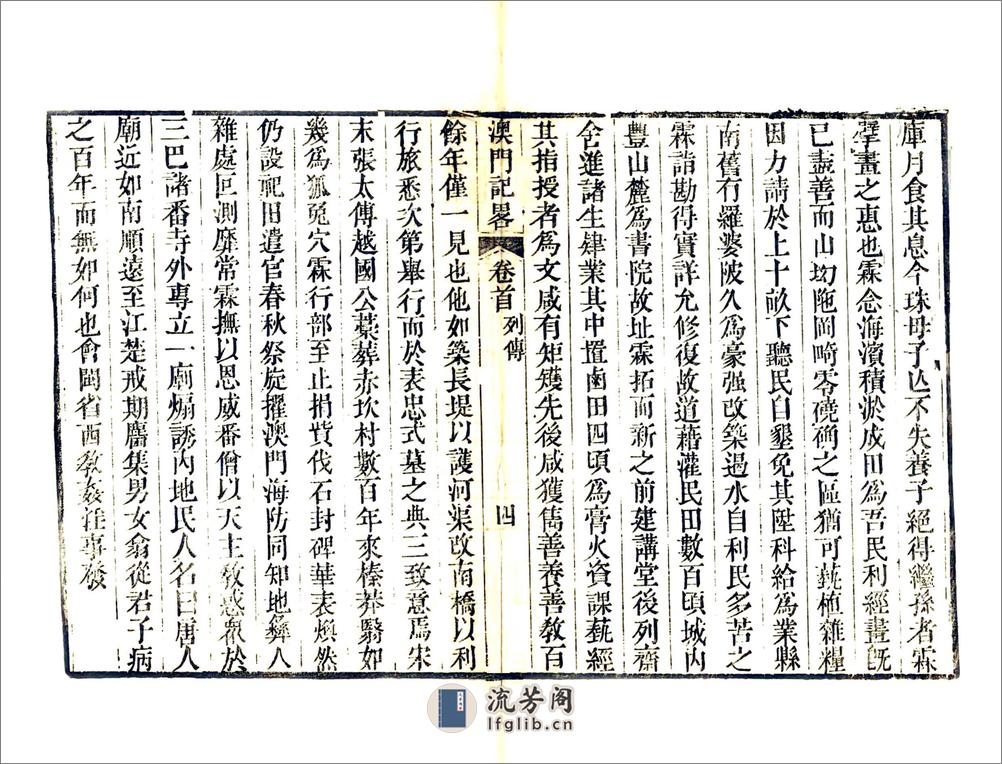 庫月食其息今珠母子亾不失養子絕得繼孫者霖
擘畫之惠也霖念海濱積淤成田為吾民利經畫旣
已盡善而山坳陁岡畸零磽确之區猶可蓺植雜糧
因力請於上十畝下聽民自墾免其陞科給為業縣
南舊有羅婆陂久為豪强改築過水自利民多苦之
霖詣勘得實詳允修復故道藉灌民田數百頃城內
豐山麓為書院故址霖拓而新之前建講堂後列齋
舍進諸生肄業其中置鹵田四頃為膏火資課蓺經
其指授者為文咸有矩矱先後咸獲雋善養善教百
澳門記畧 卷首 列傳 四
餘年僅一見也他如築長堤以護河渠改南橋以利
行旅悉次第舉行而於表忠式墓之典三致意焉宋
末張太傅越國公藁葬赤坎村數百年來榛莽翳如
幾為狐兎穴霖行部至止捐貲伐石封碑華表煥然
仍設祀田遣官春秋祭旋擢澳門海防同知地彝人
雜處叵測靡常霖撫以恩威番僧以天主教惑衆於
三巴諸番寺外專立一廟煽誘內地民人名曰唐人
廟近如南順遠至江楚戒期麕集男女翕從君子病
之百年而無如何也會閩省西教姦汪事發
流芳阁
lfglib.cn